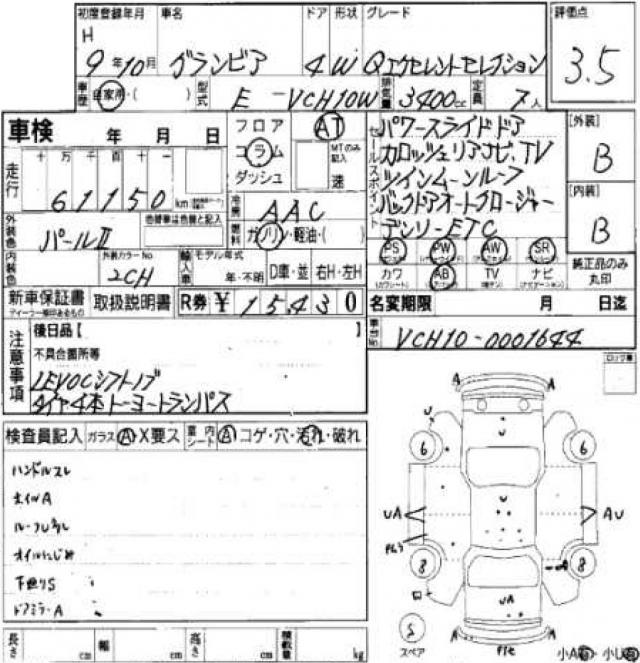 初度登録年月 車名 ドア 形状 グレード 評価点
H 9年10月 グランビア 4 W Qエクセレントセレクション 3.5
車歴 自家用・( ) 型式 E-VCH10W 排気量 3400cc 定員 7人
車検 年 月 日
フロア コラム ダッシュ AT MTのみ記入 速
走行 十 万 千 百 十 一
61150 km
セールスポイント
パワースライドドア
カロッツェリアナビ、TV
ツインムーンルーフ
バックドアオートクロージャー
デンソーETC
[外装] B
[内装] B
冷房 AAC
燃料 ガソリン・軽油・( )
外装色 パールⅡ 色替車は色線と記入
内装色 外装カラーNo 2CH
輸入車 モデル年式 年・不明 D車・並 右H・左H
PS PW AW SR
カワ AB TV ナビ
純正品のみ丸印
新車保証書 取扱説明書 R券 ¥15,430
名変期限 月 日迄
車台No. VCH10-0001644
注意事項
後日品【
不具合箇所等
LEVOCシフトノブ
タイヤ4本トーヨートランパス
検査員記入 ガラス A・X要ス 室内シート A コゲ・穴・汚れ・破れ
ハンドルスレ
オイルにじみ
下廻りS
ドアミラーA
A A
U U
6 6
U
UA AU
8 8
UA
S スペア
A A
小A 小U
長さ cm 幅 cm 高さ cm 積載量 kg